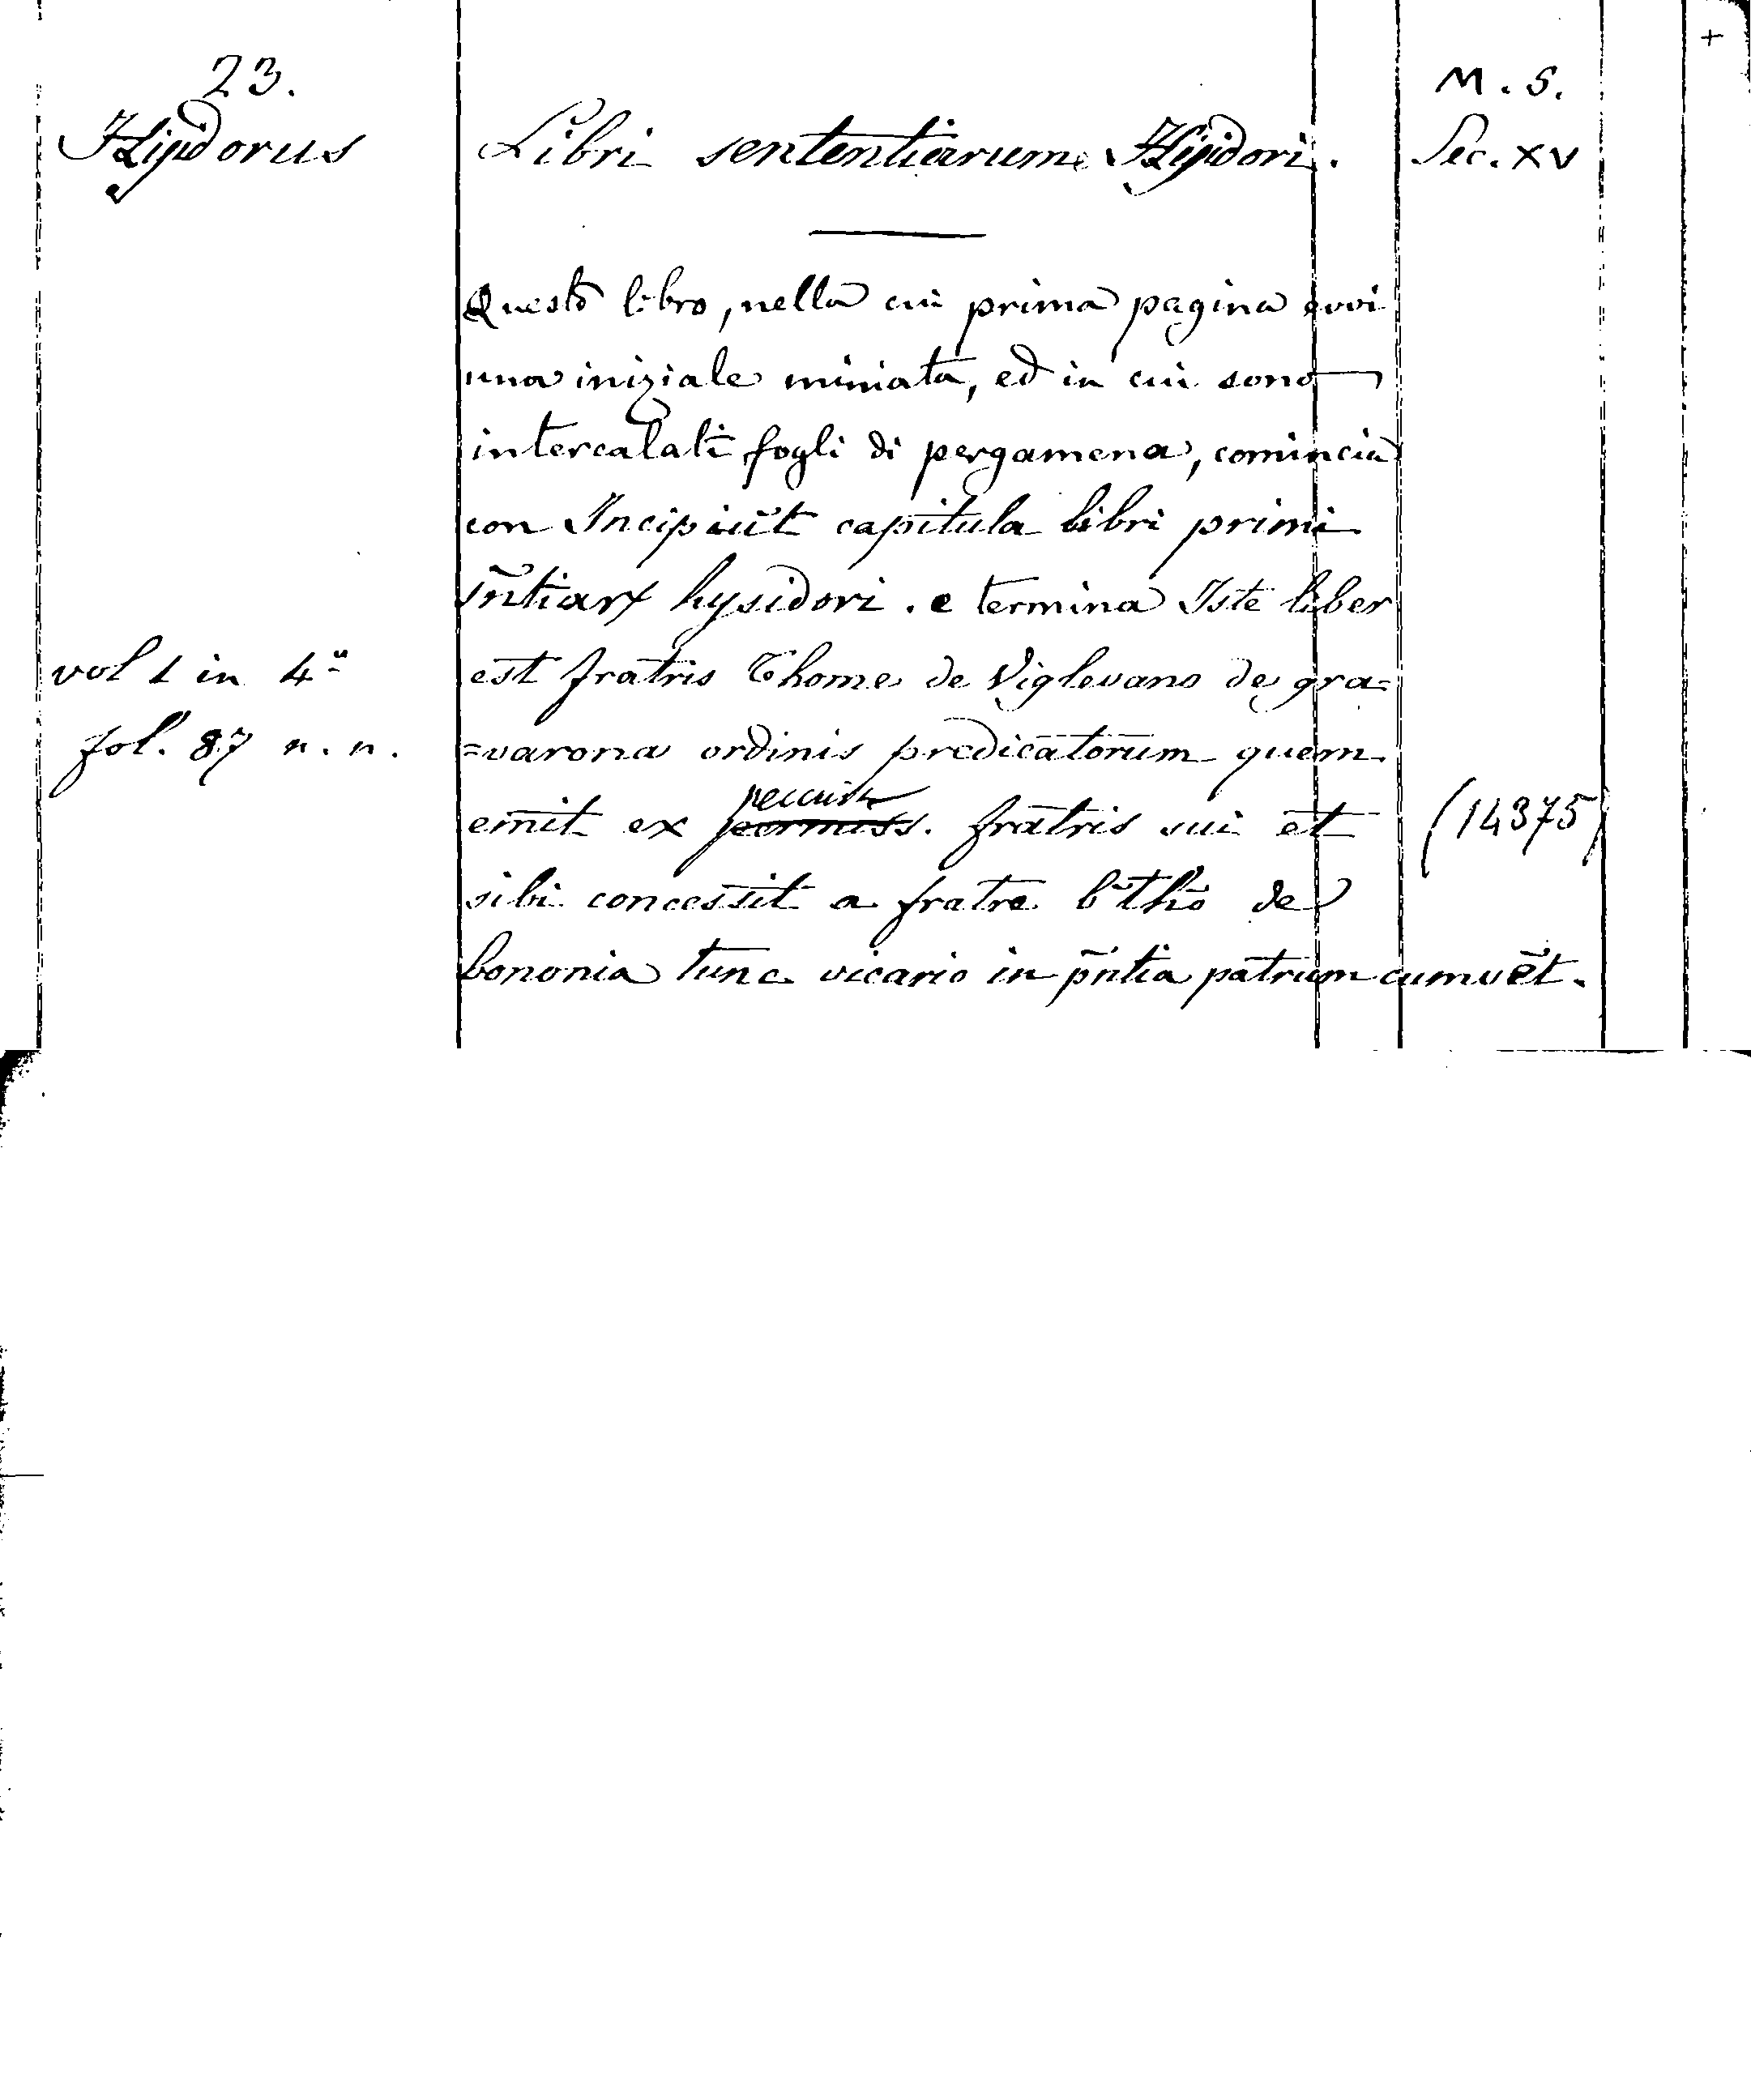 +
23.
M. S.
Hisidorus
Libri sententiarum Hisidori.
Sec. XV
Questo libro, nella cui prima pagina evvi
una iniziale miniata, ed in cui sono
intercalati fogli di pergamena, comincia
con Incipiūt capitula libri primi
sn̄tiarꝝ hysidori. e termina Iste liber
vol 1 in 4º
est fratris Thome de Viglevano de gra=
fol. 87 n. n.
=varona ordinis predicatorum quem
emit ex fratris sui et
(14375)
sibi concessit a fratre de
bononia tunc vicario in p̄ntia patrum